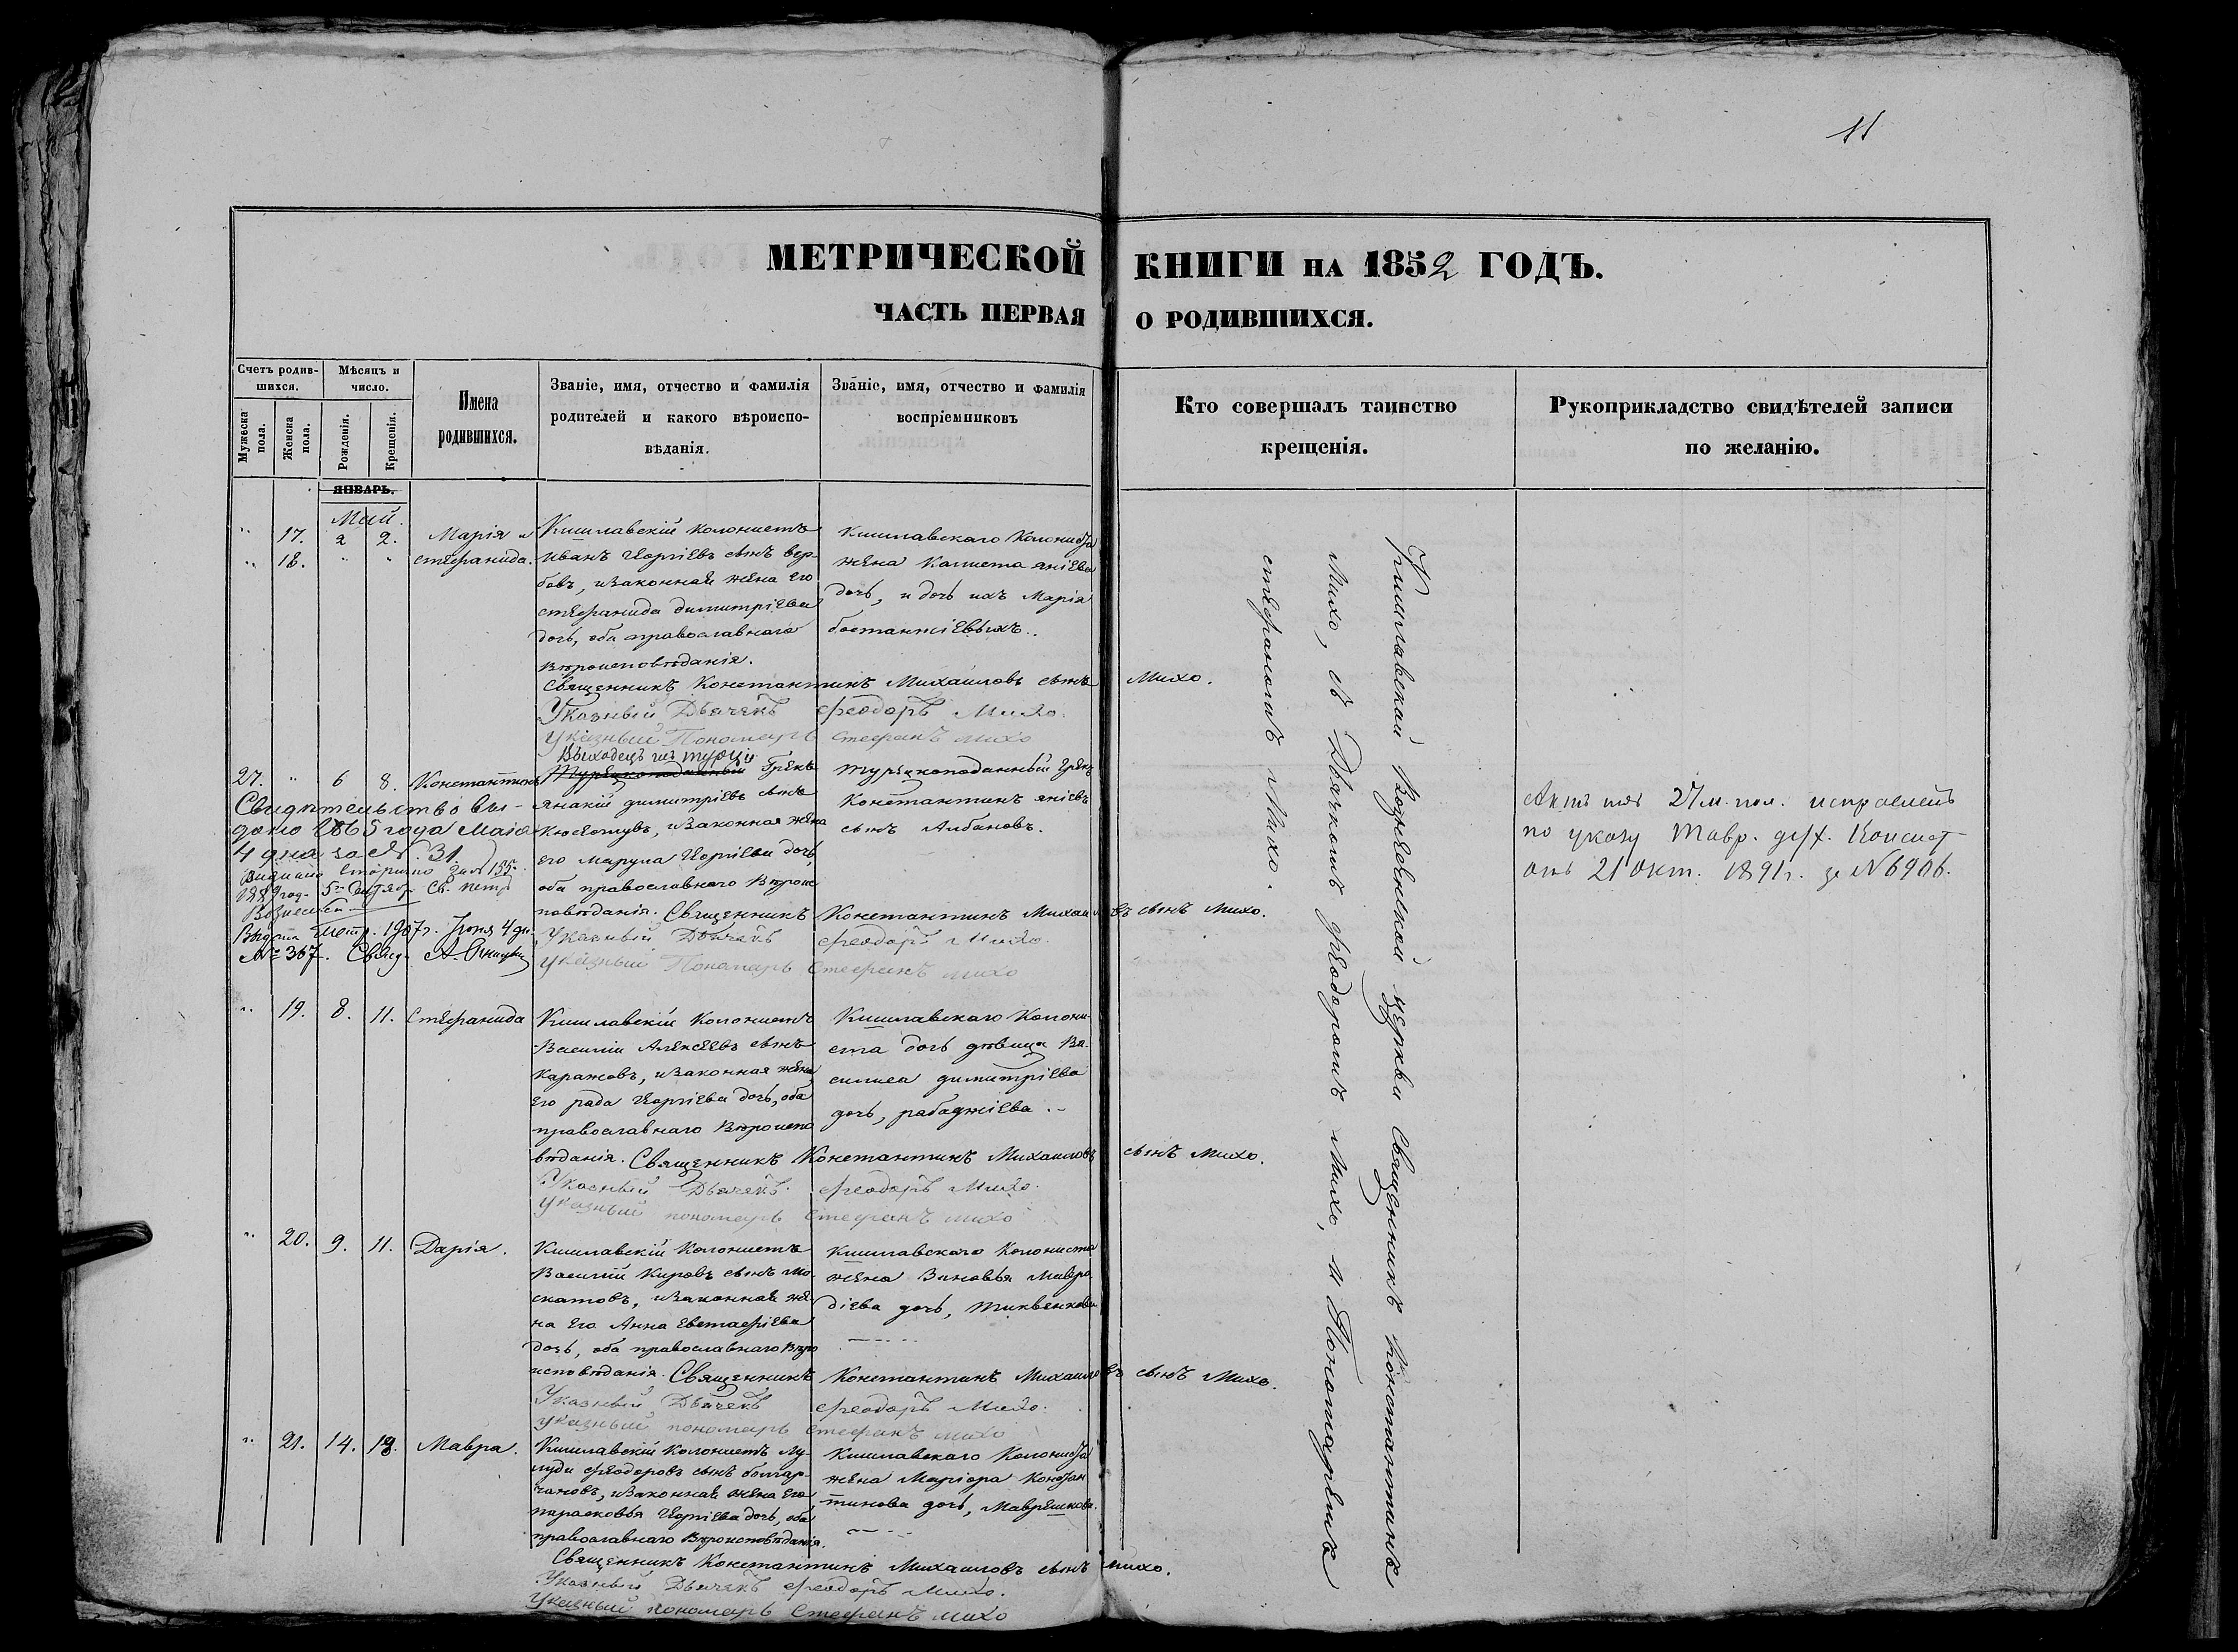 11
МЕТРИЧЕСКОЙ КНИГИ НА 1852 ГОДЪ.
ЧАСТЬ ПЕРВАЯ О РОДИВШИХСЯ.
Счетъ родив-
шихся.
Мужеска
пола.
Женска
пола.
Мѣсяцъ и
число.
Рожденія.
Крещенія.
Имена
родившихся.
Званіе, имя, отчество и фамилія
родителей и какого вѣроиспо-
вѣданія.
Званіе, имя, отчество и фамилія
воспріемниковъ
Кто совершалъ таинство
крещенія.
Рукоприкладство свидѣтелей записи
по желанію.
ЯНВАРЬ.
Май.
" 17. 2 2. Марія и
" 18. " " Стефанида.
Кишлавскій Колонистъ
Иванъ Георгіевъ сынъ вер-
бовъ, изаконная жена Его
Стефанида димитріева
дочь, оба православнаго
Вѣроисповѣданія.
Кишлавскаго Колониста
жена яніева
дочь, и дочь ихъ Марія
бостанжіевыхъ.
Священникъ Константинъ Михаиловъ сынъ Михо.
Указный Дьячекъ Феодоръ Михо.
Указный Пономарь Стефанъ Михо
27. " 6 8. Константинъ
Выходецъ изъ турціи
Турецкоподданный Грекъ
янакій димитріевъ сынъ
изаконная жена
Его Марула Георгіева дочь,
оба православнаго Вѣроис
повѣданія.
Турецкоподанный Грекъ
Константинъ яніевъ
сынъ Албановъ.
Священникъ Константинъ Михаиловъ сынъ Михо.
Указный Дьячекъ Феодоръ Михо.
Указный Пономарь Стефанъ Михо
Свидѣтельство вы-
дано 1865 года Маія
4 дня за № 31
Выдано вторично за № 135
1889 год. 5го
Выдана метр. 1907 г. Іюня 4 дн.
№ 367. Свящ.
Актъ подъ 27 м. пол. исправленъ
по указу Тавр. дух. Консист
отъ 21 Окт. 1891 г. за № 6906.
" 19. 8. 11. Стефанида
Кишлавскій Колонистъ
Василій Алексѣевъ сынъ
Каражовъ, изаконная жена
Его рада Георгіева дочь, оба
православнаго Вѣроиспо
вѣданія.
Кишлавскаго Колони-
ста дочь дѣвица Ва-
силиса димитріева
дочь, рабаджіева.
Священникъ Константинъ Михаиловъ сынъ Михо.
Указный Дьячекъ Феодоръ Михо.
Указный пономарь Стефанъ Михо
" 20. 9. 11. Дарія.
Кишлавскій Колонистъ
Василій Кировъ сынъ Мо-
скатовъ, изаконная же
на Его Анна Евстафіева
дочь, оба православнаго Вѣро
исповѣданія.
Кишлавскаго Колониста
жена Зиновья Мавро
діева дочь, Тиквенкова
Священникъ Константинъ Михаиловъ сынъ Михо.
Указный Дьячекъ Феодоръ Михо.
Указный пономарь Стефанъ Михо
" 21. 14. 18. Мавра.
Кишлавскій Колонистъ Лу-
луди Феодоровъ сынъ болгар-
чановъ, изаконная жена Его
парасковья Георгіева дочь, оба
православнаго Вѣроисповѣданія.
Кишлавскаго Колониста
жена Маріора Констан
тинова дочь, Маврешкова.
Священникъ Константинъ Михаиловъ сынъ Михо.
Указный Дьячекъ Феодоръ Михо.
Указный пономарь Стефанъ Михо
Кишлавской Вознесенской церкви Священникъ Константинъ
Михо, съ Дьячкомъ Феодоромъ Михо, и Пономаремъ
Стефаномъ Михо.